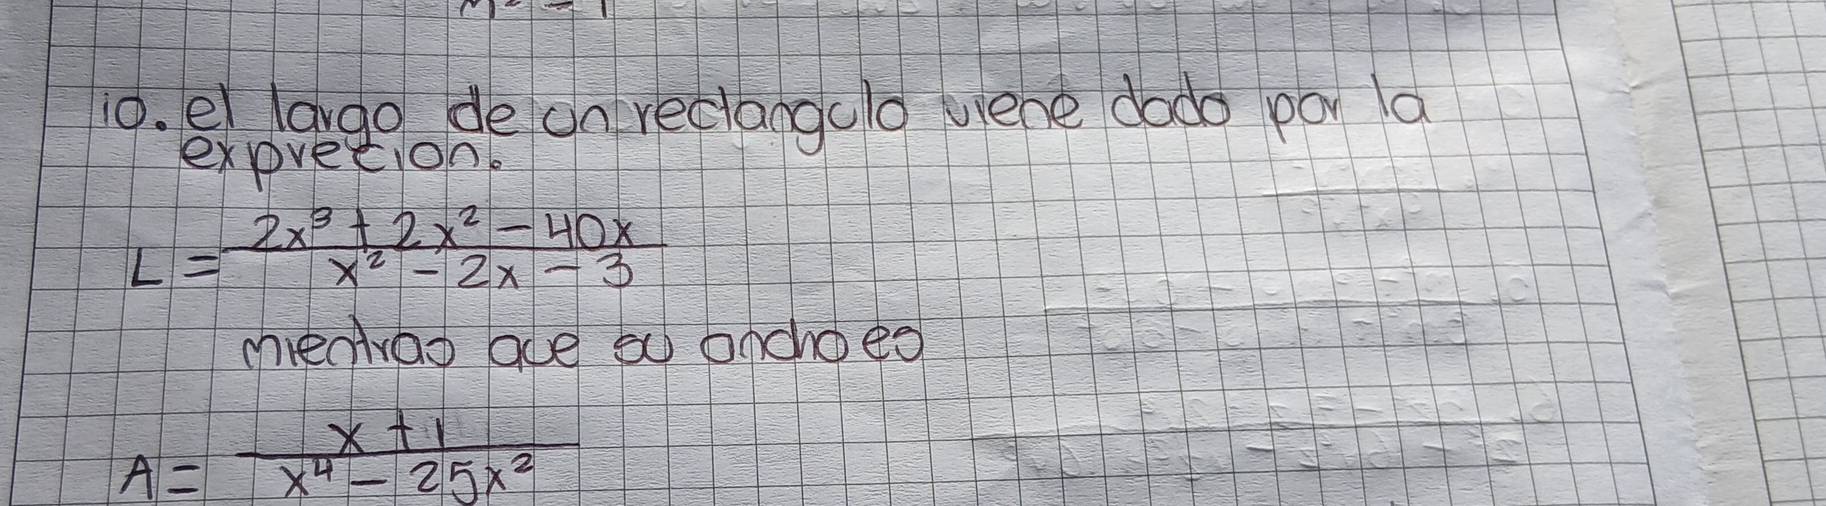 10. el largo de un rectangulo viene dado por la
exprecion.
L = \frac{2x³ + 2x² - 40x}{x² - 2x - 3}
mientras que su ancho es
A = \frac{x + 1}{x⁴ - 25x²}